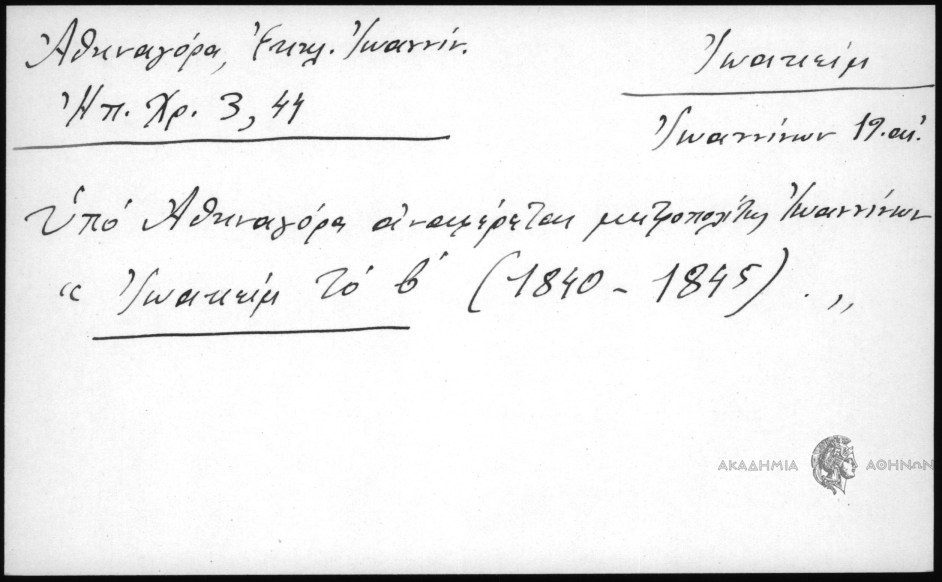 Ἀθηναγόρα, Ἐκκλ. Ἰωαννίν.
Ἠπ. Χρ. 3, 44
Ἰωακείμ
Ἰωαννίνων 19. αἰ.
Ὑπό Ἀθηναγόρα ἀναφέρεται μητροπολίτης Ἰωαννίνων
“ Ἰωακείμ τό β΄ (1840 - 1845) . „
ΑΚΑΔΗΜΙΑ ΑΘΗΝΩΝ